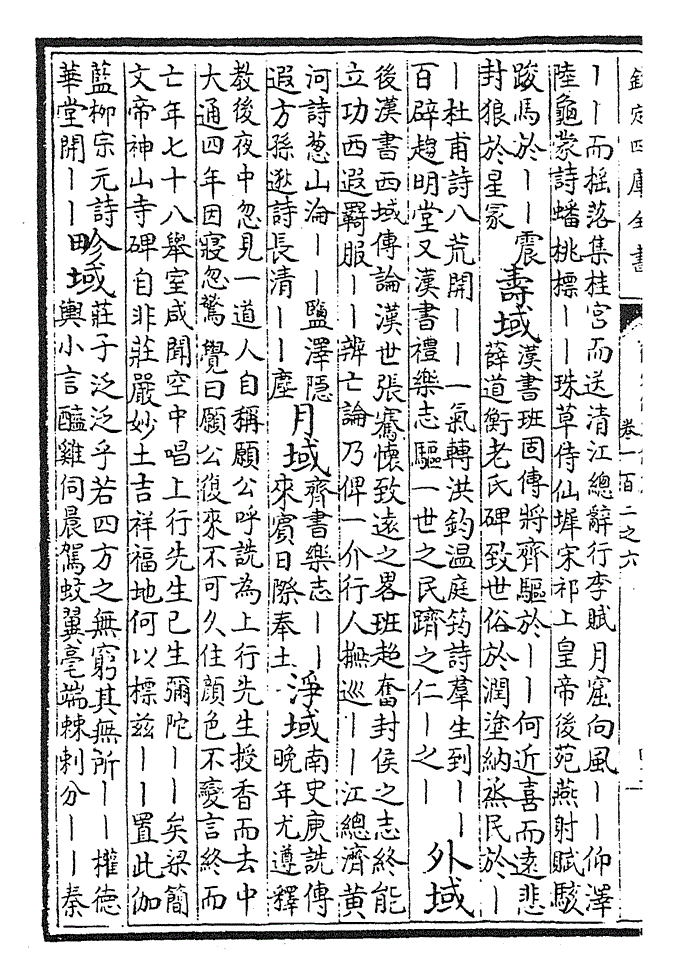 欽定四庫全書
卷一百二之六
丨丨而摇落集桂宮而送清江總辭行李賦月窟向風丨丨仰澤
陸龜蒙詩蟠桃標丨丨珠草侍仙墀宋祁上皇帝後苑燕射賦駭
踆馬於丨丨震
封狼於星冡
壽域
漢書班固傳將齊驅於丨丨何近喜而遠悲
薛道衡老氏碑致世俗於潤塗納烝民於丨
丨杜甫詩八荒開丨丨一氣轉洪鈞温庭筠詩羣生到丨丨
百辟趨明堂又漢書禮樂志驅一世之民躋之仁丨之丨
外域
後漢書西域傳論漢世張騫懷致遠之畧班超奮封侯之志終能
立功西遐羈服丨丨辨亡論乃俾一介行人撫巡丨丨江總濟黄
河詩葱山淪丨丨鹽澤隠
遐方孫逖詩長清丨丨塵
月域
齊書樂志丨丨
來賓日際奉土
淨域
南史庾詵傳
晚年尤遵釋
教後夜中忽見一道人自稱願公呼詵為上行先生授香而去中
大通四年因寢忽驚覺曰願公復來不可久住顔色不變言終而
亡年七十八舉室咸聞空中唱上行先生已生彌陀丨丨矣梁簡
文帝神山寺碑自非莊嚴妙土吉祥福地何以標兹丨丨置此伽
藍柳宗元詩
華堂開丨丨
畛域
莊子泛泛乎若四方之無窮其無所丨丨權德
輿小言醯雞伺晨駕蚊翼毫端棘刺分丨丨秦